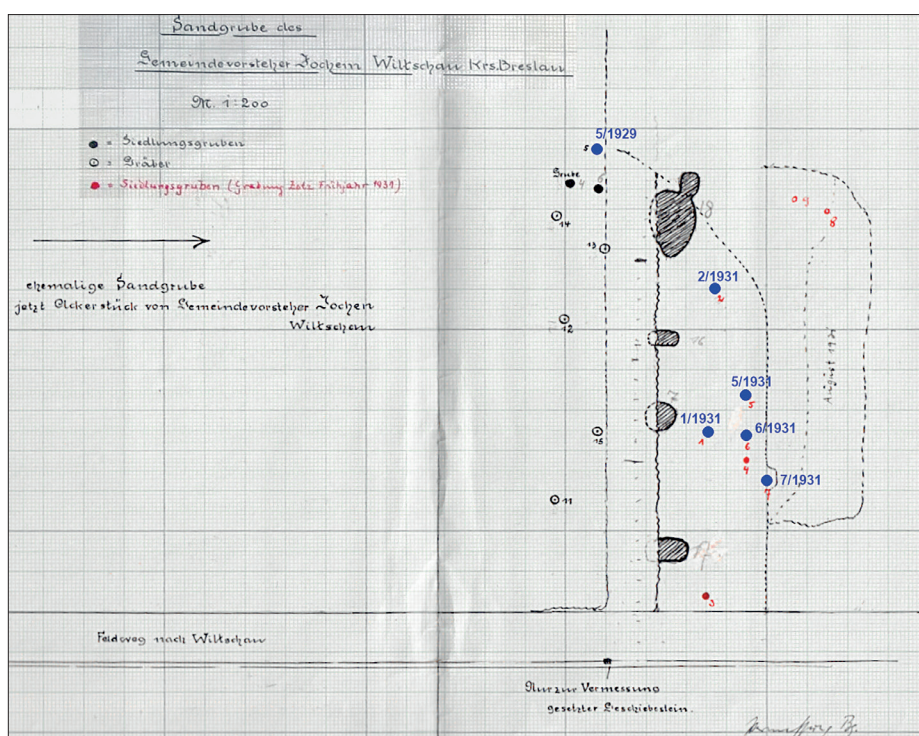 Sandgrube des
Gemeindevorsteher Jochem Wiltschau Krs. Breslau
M. 1:200
= Siedlungsgruben
= Gräber
= Siedlungsgruben (Grabung Zotz Frühjahr 1931)
ehemalige Sandgrube
jetzt Ackerstück von Gemeindevorsteher Jochen
Wiltschau
5/1929
5
Grube 4
6
14
13
18
9
8
2/1931
2
12
16
August 1931
5/1931
5
1/1931
6/1931
15
1
6
4
7/1931
7
11
17
3
Feldweg nach Wiltschau
Nur zur Vermessung
gesetzter Geschiebestein.